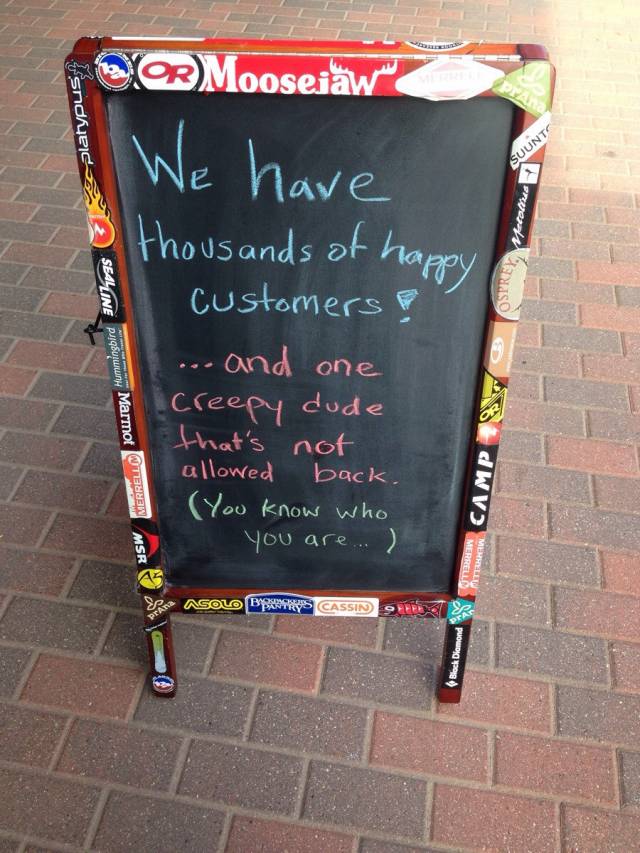 OR
Moosejaw
MERRELL
prAna
SUUNTO
platypus
We have
thousands of happy
customers!
... and one
creepy dude
that's not
allowed back.
(You know who
you are... )
Metolius
OSPREY
SEAL LINE
Hummingbird
Marmot
OR
CAMP
MERRELL
MSR
MERRELL
MERRELL
prAna
ASOLO
BACKPACKER'S
PANTRY
CASSIN
prAna
Black Diamond